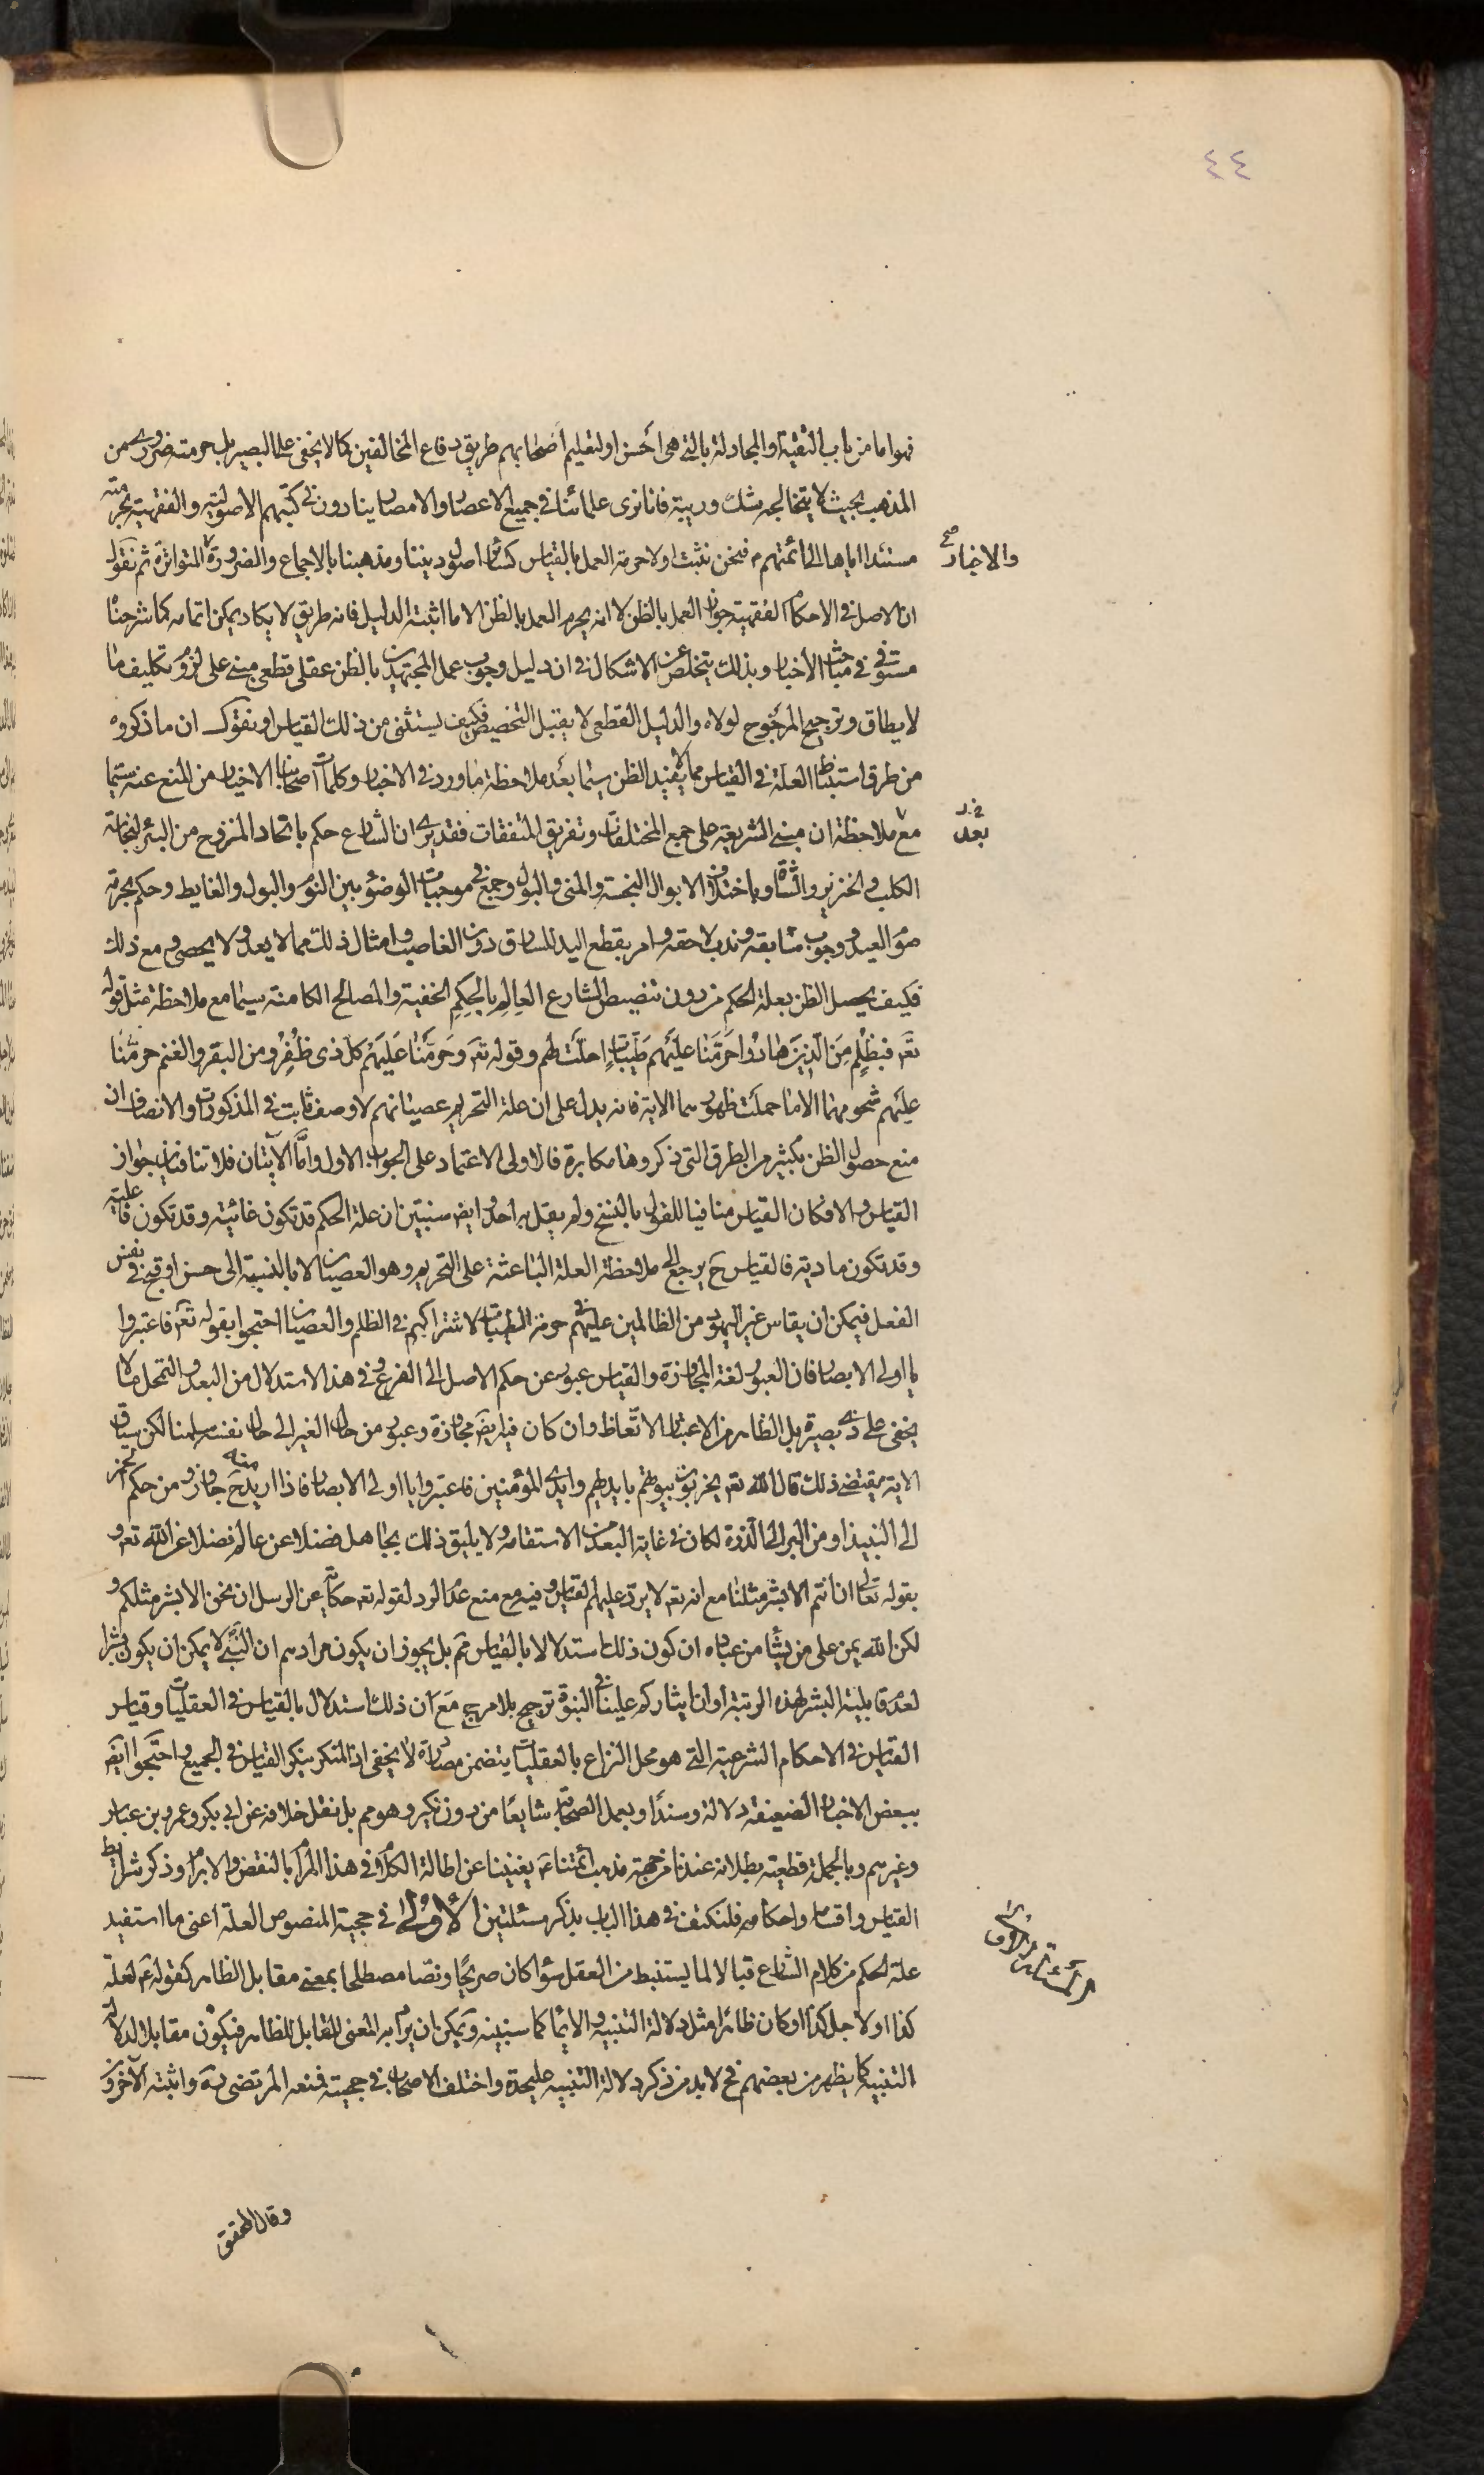 ٤٤
فهو اما من باب التقية او المجادلة بالتي هي أحسن او لتعليم أصحابهم طريق دفاع المخالفين كما لا يخفى على البصير بل حرمته ضروري من
المذهب بحيث لا يتخالجه شك وريبة فانا نرى علمائنا في جميع الاعصار والامصار ينادون في كتبهم الاصولية والفقهية بحرمته
مستندا اياها الى ائمتهم ع فنحن نثبت اولا حرمة العمل بالقياس كسائر اصول ديننا ومذهبنا بالاجماع والضرورة المتواترة ثم نقول
والاخبار صح
ان الاصل في الاحكام الفقهية جواز العمل بالظن لا انه يحرم العمل بالظن الا ما اثبته الدليل فانه طريق لا يكاد يمكن اتمامه كما شرحنا
مستوفى في مباحث الأخبار وبذلك يتخلص عن الاشكال في ان دليل وجوب عمل المجتهدين بالظن عقلي قطعي مبني على لزوم تكليف ما
لا يطاق وترجيح المرجوح لولاه والدليل القطعي لا يقبل التخصيص فكيف يستثنى من ذلك القياس او نقول ان ما ذكروه
من طرق استنباط العلة في القياس مما لا يفيد الظن سيما بعد ملاحظة ما ورد في الاخبار وكلمات اصحابنا الاخيار من المنع عنه سيما
مع ملاحظة ان مبنى الشريعة على جمع المختلفات وتفريق المتفقات فقد يرى ان الشارع حكم باتحاد المنزوح من البئر لنجاسة
بعد
الكلب والخنزير والشاة وباختلاف الابوال النجسة والمني والبول وجمع في موجبات الوضوء بين النوم والبول والغايط وحكم بحرمة
صوم العيد ووجوب سابقه وندب لاحقه وامر بقطع اليد للسارق دون الغاصب وامثال ذلك مما لا يعد ولا يحصى ومع ذلك
فكيف يحصل الظن بعلة الحكم من دون تنصيص الشارع العالِم بالحِكم الخفية والمصالح الكامنة سيما مع ملاحظة مثل قوله
تع فبظلم من الذين هادوا حرمنا عليهم طيبات احلت لهم وقوله تع وحرمنا عليهم كل ذي ظفر ومن البقر والغنم حرمنا
عليهم شحومهما الا ما حملت ظهورهما الاية فانه يدل على ان علة التحريم عصيانهم لا وصف ثابت في المذكورات والانصاف ان
منع حصول الظن بكثير من الطرق التي ذكروها مكابرة فالاولى الاعتماد على الجواب الاول واما الآيتان فلا تنافيان جواز
القياس والا فكان القياس منافيا للقول بالنسخ ولم يقل به احد وايض سنبين ان علة الحكم قد تكون غائية وقد تكون فاعلية
وقد تكون مادية فالقياس ح يرجع الى ملاحظة العلة الباعثة على التحريم وهو العصيان لا بالنسبة الى حسن او قبح في نفس
الفعل فيمكن ان يقاس غير اليهود من الظالمين عليهم في حرمة الطيبات لاشتراكهم في الظلم والعصيان احتجوا بقوله تع فاعتبروا
يا اولى الابصار فان العبور لغة المجاوزة والقياس عبور عن حكم الاصل الى الفرع وفي هذا الاستدلال من البعد والتمحل ما لا
يخفى على ذي بصيرة بل الظاهر من الاعتبار الاتعاظ وان كان فيه ايض مجاوزة وعبور من حال الغير الى حال نفسه سلمنا لكن سياق
الاية يقتضي ذلك قال الله تع يخربون بيوتهم بايديهم وايدي المؤمنين فاعتبروا يا اولى الابصار فاذا اريد منه ح جاوزوا من حكم الخمر
الى النبيذ او من البر الى الذرة لكان في غاية البعد من الاستقامة ولا يليق ذلك بجاهل فضلا عن عالم فضلا عن الله تع و
بقوله تعالى ان انتم الا بشر مثلنا مع انه تع لا يرد عليهم القياس وفيه مع منع عدم الرد لقوله تع حكاية عن الرسل ان نحن الا بشر مثلكم و
لكن الله يمن على من يشاء من عباده ان كون ذلك استدلالا بالقياس مم بل يجوز ان يكون مرادهم ان النبي لا يمكن ان يكون بشرا
لعدم قابلية البشر لهذه الرتبة او ان ايثاركم علينا في النبوة ترجيح بلا مرجح مع ان ذلك استدلال بالقياس في العقليات وقياس
القياس في الاحكام الشرعية التي هو محل النزاع بالعقليات يتضمن مصادرة لا يخفى اذ المنكر ينكر القياس في الجميع واحتجوا ايض
ببعض الاخبار الضعيفة دلالة وسندا وبعمل الصحابة شايعا من دون نكير وهو مم بل نقل خلافه عن ابي بكر وعمر وبن عباس
وغيرهم وبالجملة قطعية بطلانه عندنا من جهة مذهب ائمتنا ع يغنينا عن اطالة الكلام في هذا المرام بالنقض والابرام وذكر شرايط
القياس واقسامه واحكامه فلنكتف في هذا الباب بذكر مسئلتين الأولى في حجية المنصوص العلة اعني ما استفيد
علة الحكم من كلام الشارع قبالا لما يستنبط من العقل سواء كان صريحا ونصا مصطلحا بمعنى مقابل الظاهر كقوله ع لعلة
كذا او لاجل كذا او كان ظاهرا مثل دلالة التنبيه والايماء كما سنبينه ويمكن ان يراد به المعنى المقابل للظاهر فيكون مقابلا لدلالة
التنبيه كما يظهر من بعضهم فح لا بد من ذكر دلالة التنبيه عليحدة واختلف الاصحاب في حجيته فمنعه المرتضى ره واثبته الآخرون
وقال المحقق